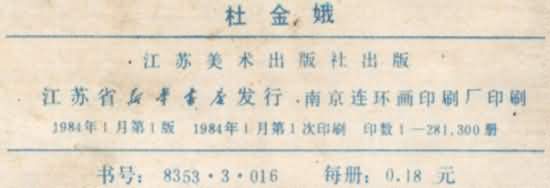 杜金娥
江苏美术出版社出版
江苏省新华书店发行·南京连环画印刷厂印刷
1984年1月第1版 1984年1月第1次印刷 印数1—281,300册
书号：8353·3·016 每册：0.18 元